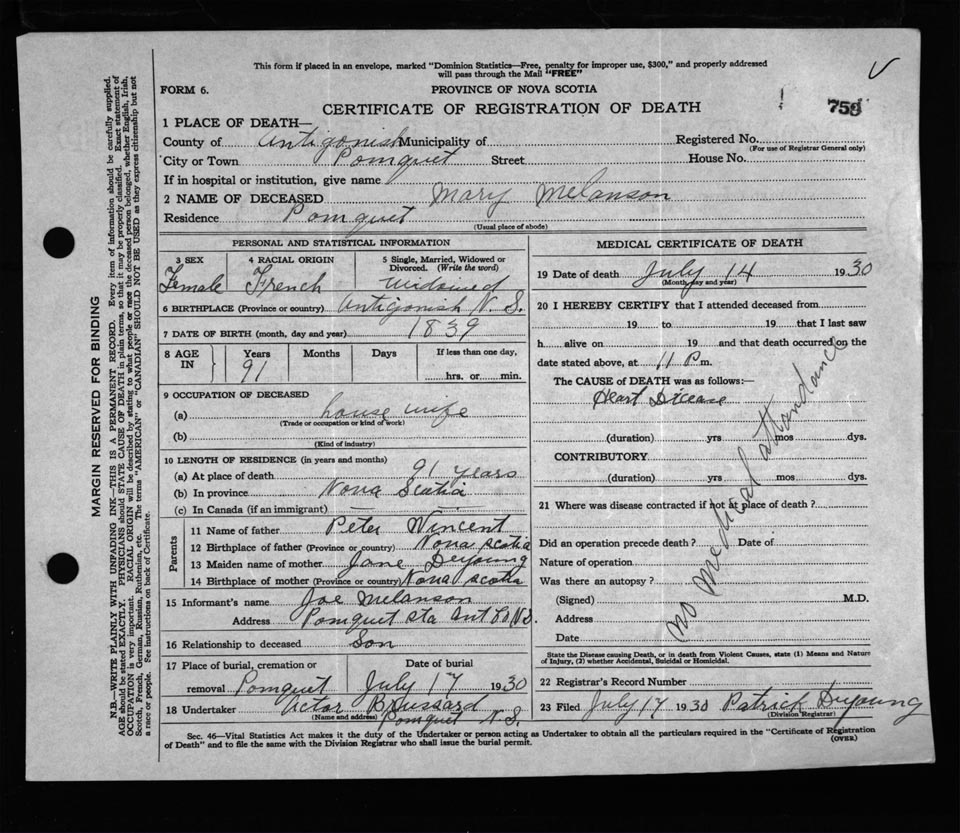 This form if placed in an envelope, marked "Dominion Statistics—Free, penalty for improper use, $300," and properly addressed
will pass through the Mail "FREE"
FORM 6.
PROVINCE OF NOVA SCOTIA
CERTIFICATE OF REGISTRATION OF DEATH
759
1 PLACE OF DEATH—
County of Antigonish Municipality of
Registered No.
(For use of Registrar General only)
City or Town Pomquet Street House No.
If in hospital or institution, give name
2 NAME OF DECEASED Mary Melanson
Residence Pomquet
(Usual place of abode)
PERSONAL AND STATISTICAL INFORMATION
3 SEX
Female
4 RACIAL ORIGIN
French
5 Single, Married, Widowed or
Divorced. (Write the word)
Widowed
6 BIRTHPLACE (Province or country) Antigonish N. S.
7 DATE OF BIRTH (month, day and year) 1839
8 AGE IN
Years
91
Months
Days
If less than one day,
hrs. or min.
9 OCCUPATION OF DECEASED
(a) house wife
(Trade or occupation or kind of work)
(b)
(Kind of industry)
10 LENGTH OF RESIDENCE (in years and months)
(a) At place of death 91 years
(b) In province Nova Scotia
(c) In Canada (if an immigrant)
Parents
11 Name of father Peter Vincent
12 Birthplace of father (Province or country) Nova scotia
13 Maiden name of mother Jane Deyoung
14 Birthplace of mother (Province or country) Nova scotia
15 Informant's name Joe Melanson
Address Pomquet Sta Ant Co N.S.
16 Relationship to deceased Son
17 Place of burial, cremation or
removal Pomquet
Date of burial
July 17 1930
18 Undertaker Victor Brussard
(Name and address) Pomquet N. S.
MEDICAL CERTIFICATE OF DEATH
19 Date of death July 14 1930
(Month, day and year)
20 I HEREBY CERTIFY that I attended deceased from
19 to 19 that I last saw
h alive on 19 and that death occurred on the
date stated above, at 11 P m.
The CAUSE OF DEATH was as follows:—
Heart Dicease
(duration) yrs mos dys.
CONTRIBUTORY
(duration) yrs mos dys.
21 Where was disease contracted if not at place of death?
Did an operation precede death? Date of
Nature of operation
Was there an autopsy?
(Signed) M.D.
Address
Date
No medical attandance
State the Disease causing Death, or in death from Violent Causes, state (1) Means and Nature
of Injury, (2) whether Accidental, Suicidal or Homicidal.
22 Registrar's Record Number
23 Filed July 17 1930 Patrick Deyoung
(Division Registrar)
Sec. 46—Vital Statistics Act makes it the duty of the Undertaker or person acting as Undertaker to obtain all the particulars required in the "Certificate of Registration
of Death" and to file the same with the Division Registrar who shall issue the burial permit.
(OVER)
MARGIN RESERVED FOR BINDING
N.B.—WRITE PLAINLY WITH UNFADING INK—THIS IS A PERMANENT RECORD. Every item of information should be carefully supplied.
AGE should be stated EXACTLY. PHYSICIANS should STATE CAUSE OF DEATH in plain terms, so that it may be properly classified. Exact statement of
OCCUPATION is very important. RACIAL ORIGIN will be described by stating to what people or race the deceased person belonged, whether English, Irish,
Scotch, French, German, Russian, Ruthenian, etc. The terms "AMERICAN" or "CANADIAN" SHOULD NOT BE USED as they express citizenship but not
a race or people. See instructions on back of Certificate.